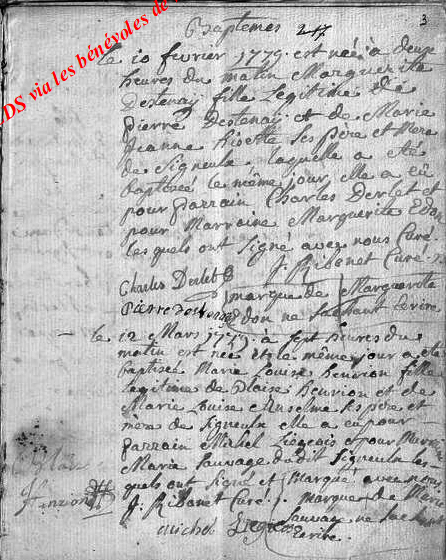 DS via les bénévoles de
3
Baptemes 217
le 10 fevrier 1779. est neé à deux
heures du matin Marguerite
Destenay fille Legitime de
pierre Destenay et de Marie
Jeanne Ricette ses pere et Mere
de Signeulx laquelle a eté
baptisée le même jour elle a eû
pour parrain Charles Derlet et
pour Marraine Marguerite
les quels ont signé avec nous Curé.
J. Ribonet Curé.
Charles Derlet
marque de Marguerite
Pierre
don ne sachant ecrire
le 12 Mars 1779. à sept heures du
matin est neé et le même jour a eté
baptisée Marie Louise henrion fille
legitime de Blaise henrion et de
Marie Louise Anselme ses pere et
mere de Signeulx elle a eu pour
parrain Michel Liegeois et pour
Marie Sauvage dudit Signeulx les-
quels ont signé et marqué avec nous
J. Ribonet Curé. marque de
Sauvage ne
michel Liegeois ecrire.